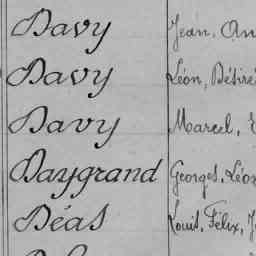 Davy Jean, An
Davy Léon, Désiré
Davy Marcel,
Daygrand Georges, Léon
Déas Louis, Félix, J